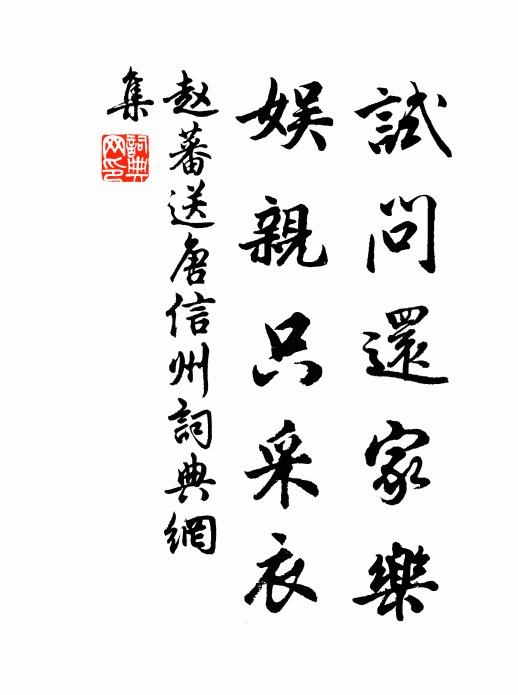 試問還家樂
娱親只采衣
赵蕃送唐信州詞典網
集
詞典
网印